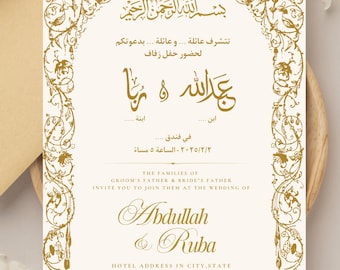 بسم الله الرحمن الرحيم
تتشرف عائلة ... و عائلة ... بدعوتكم
لحضور حفل زفاف
عبدالله و ربا
ابن .... ابنة ....
في فندق ....
٢٠٢٥/٢/٢ - الساعة ٥ مساءً
THE FAMILIES OF
GROOM'S FATHER & BRIDE'S FATHER
INVITE YOU TO JOIN THEM AT THE WEDDING OF
Abdullah
& Ruba
HOTEL ADDRESS IN CITY, STATE